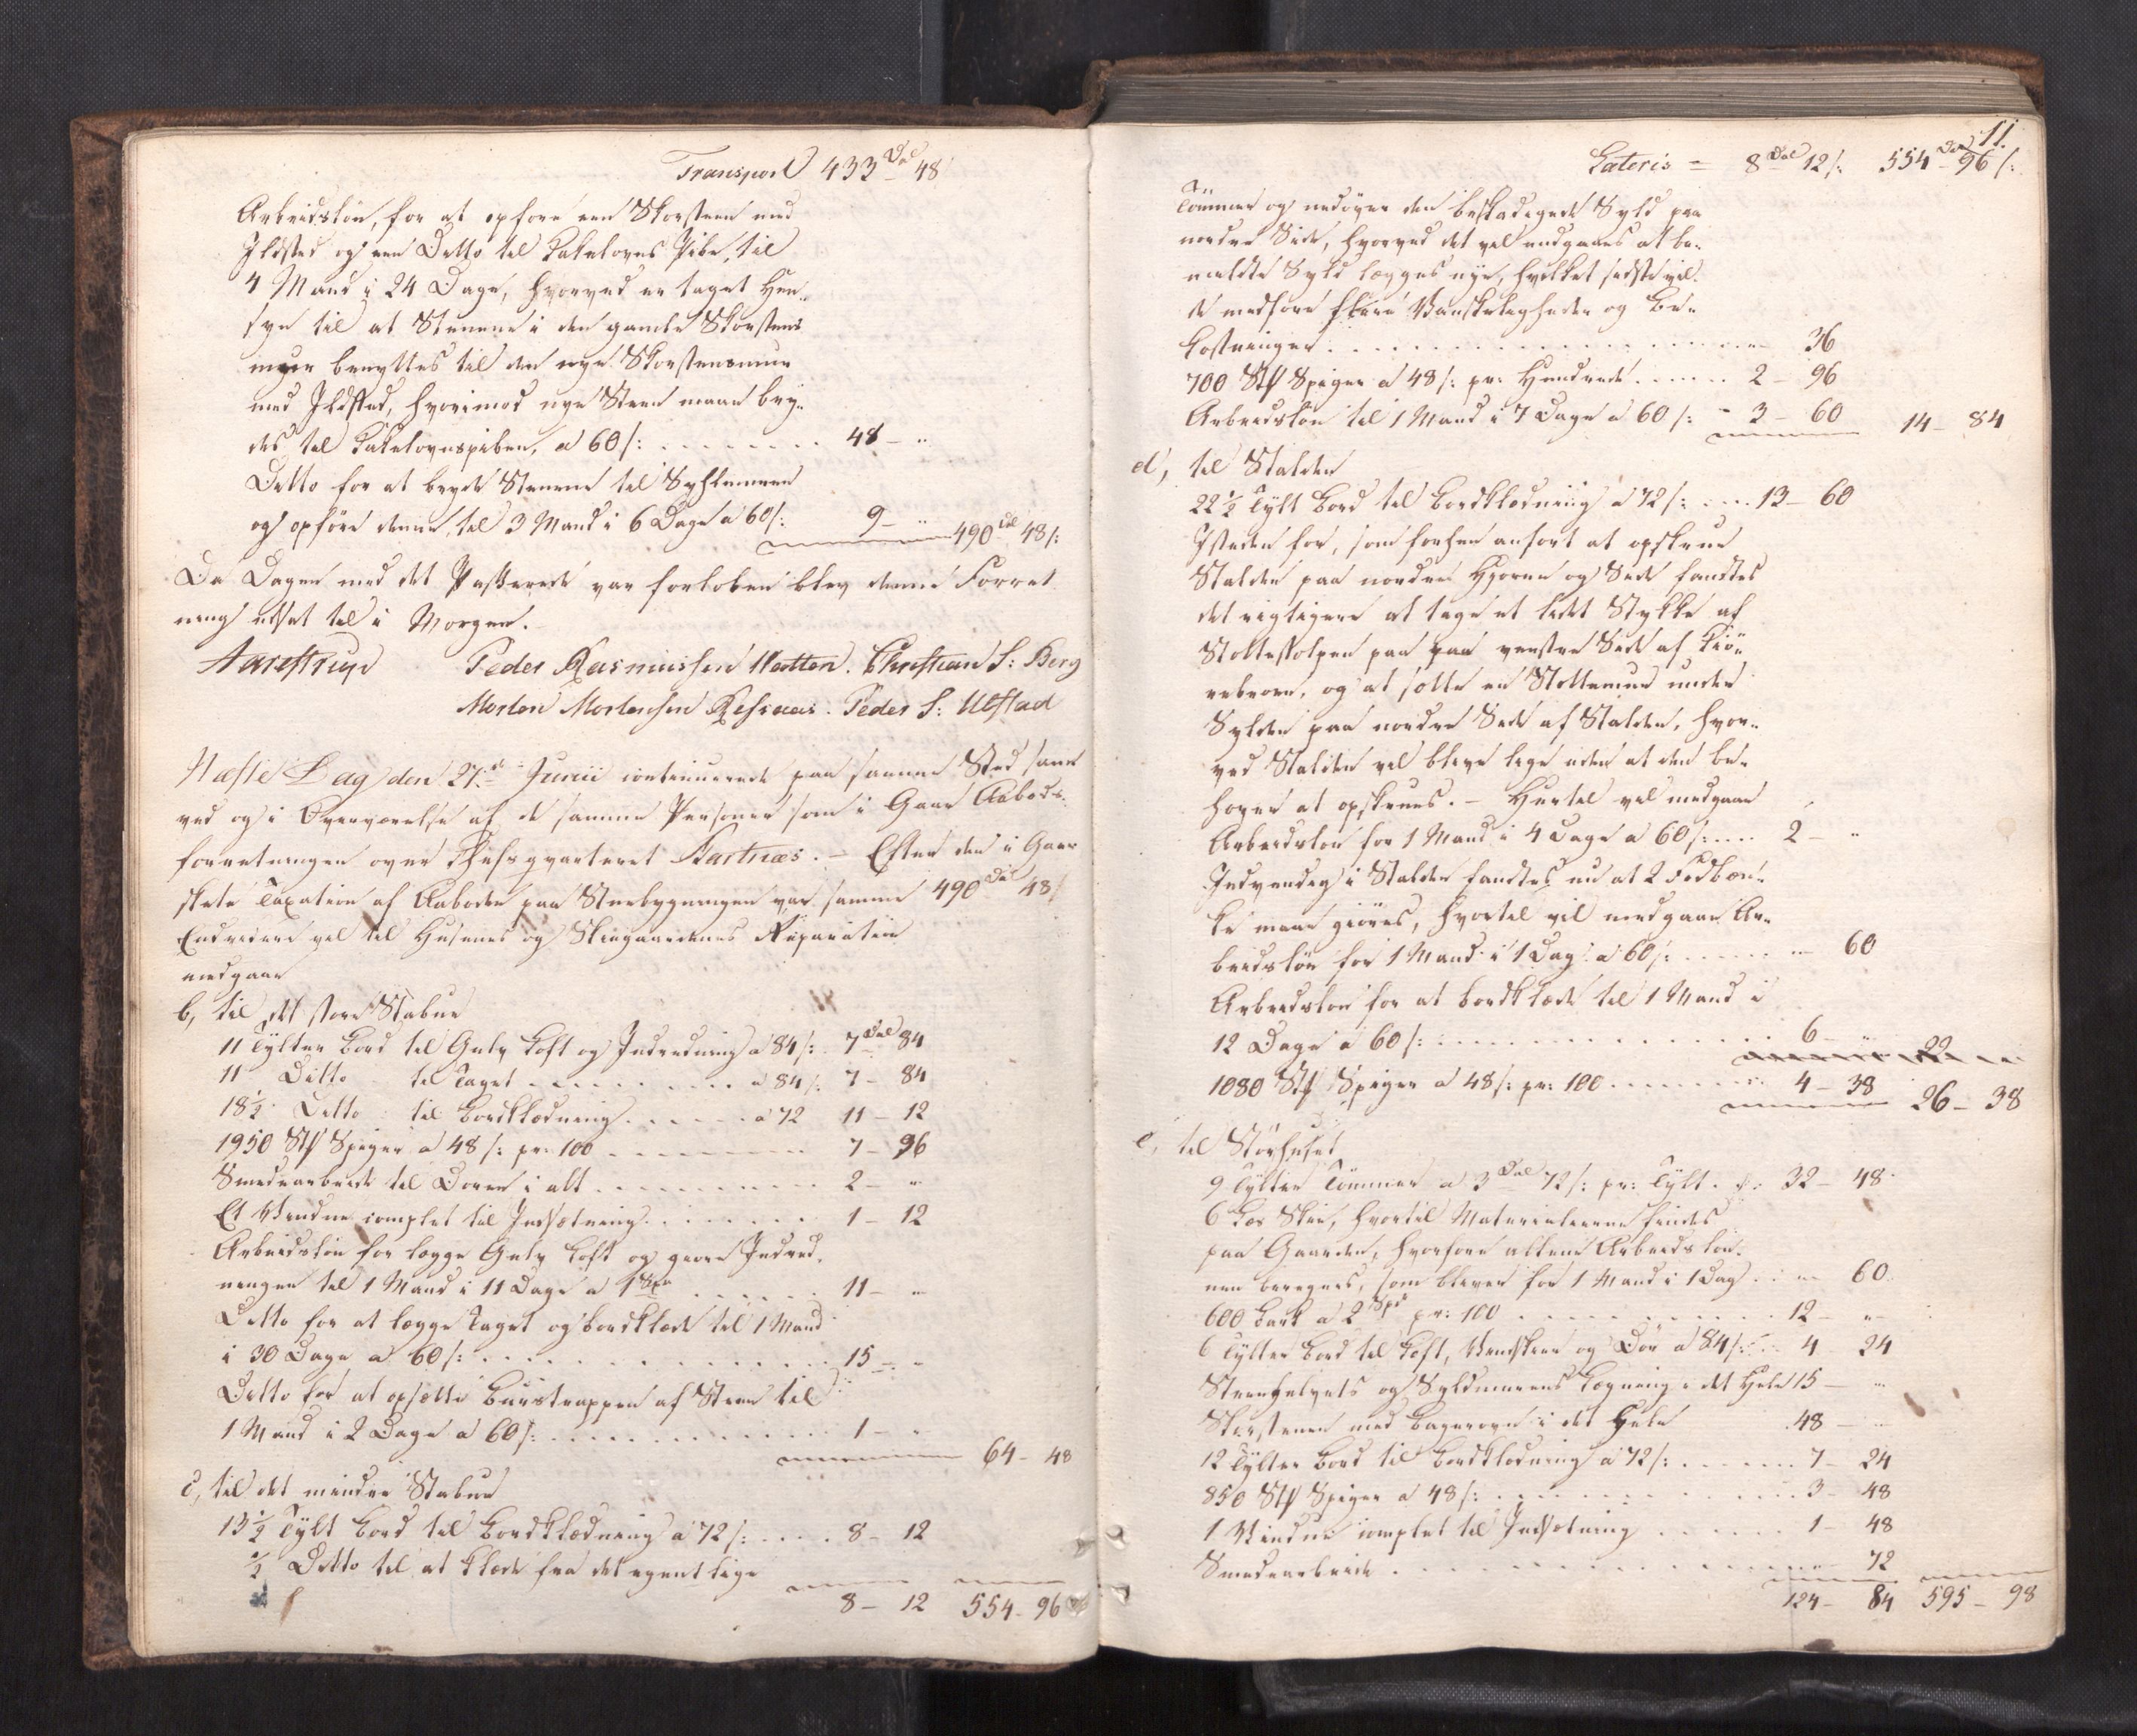 Transport 433 Dal 48
Arbeidsløn, for at opføre een Skorsteen med
Ildsted og een Ditto til Kakelovns Pibe, til
4 Mand i 24 Dage, hvorved er taget Hen-
syn til at Stenene i den gamle Skorsteens
muur benyttes til den nye Skorsteensmuur
med Ildsted, hvorimod nye Steen maae bry-
des til Kakelovnspiben, a 60 s: . . . . . . . . 48 – "
Ditto for at bryde Stenene til Syldmuren
og opføre denne, til 3 Mand i 6 Dage a 60 s: 9 – " 490 Dal 48 s:
Da Dagen med det Passerede var forløben blev denne Forret
ning udsat til i Morgen.
Aarestrup Peder Rasmussen Christian S: Berg
Morten Mortensen Refsnæs. Peder S: Ulstad
Næste Dag den 27de Junii continuerede paa samme Sted samt
ved og i Overværelse af de samme Personer som i Gaar Aabods-
forretningen over Chefsqvarteret Hartnæs. – Efter den i Gaar
skete Taxation af Aaboden paa Stuebygningen var samme 490 Dal 48 s
Endvidere vil til Husenes og Skiegaardenes Reparation
medgaae
b, til det store Stabur
11 Tylter Bord til Gulv Loft og Indredning a 84 s: 7 Dal 84
11 Ditto til Taget . . . . . . . . . a 84 s: 7 – 84
18½ Ditto til Bordklædning . . . . . . a 72 11 – 12
1950 Stk Spiger a 48 s: pr: 100 . . . . . . . . 7 – 96
Smedearbeide til Døren i alt . . . . . . . . . 2 – "
Et Vindue complet til Indsætning . . . . . . . 1 – 12
Arbeidsløn for lægge Gulv Loft og giøre Indred-
ningen til 1 Mand i 11 Dage a 1 . . . . . . 11 – "
Ditto for at lægge Taget og bordklæde til 1 Mand
i 30 Dage a 60 s: . . . . . . . . . . . . . 15 – "
Ditto for at opsætte Buurstrappen af Steen til
1 Mand i 2 Dage a 60 s: . . . . . . . . . . . 1 – "
64 – 48
c, til det mindre Stabur
13½ Tylt Bord til Bordklædning a 72 s: . . . . 8 – 12
½ Ditto til at klæde fra det egentlige
8 – 12 554 – 96
11.
Lateris = 8 Dal 12 s: 554 Dal 96 s:
Tømmer og nedøver den beskadigede Syld paa
nordre Side, hvorved det vel undgaaes at be-
meldte Syld lægges nye, hvilket sidste vil-
de medføre flere Vanskeligheder og Be-
kostninger . . . . . . . . . . . . . . . " – 36
700 Stk Spiger a 48 s: pr: Hundrede . . . . . . 2 – 96
Arbeidsløn til 1 Mand i 7 Dage a 60 s: – 3 – 60 14 – 84
d, til Stalden
22½ Tylt Bord til Bordklædning a 72 s: . . . 13 – 60
Isteden for, som forhen anført at opskrue
Stalden paa nordre Hjørne og Side fandtes
det rigtigere at tage et lidet Stykke af
Stottestolpen paa paa venstre Side af Kiø-
rebroen, og at sætte en Stottemuur under
Sylden paa nordre Side af Stalden, hvor-
ved Stalden vil blive lige uden at den be-
høver at opskrues. – Hertil vil medgaae
Arbeidsløn for 1 Mand i 4 Dage a 60 s: . . . 2 – "
Indvendig i Stalden fandtes nu at 2 Fodbøn-
ke maae giøres, hvortil vil medgaae Ar-
beidsløn for 1 Mand i 1 Dag a 60 s: . . . . . " – 60
Arbeidsløn for at bordklæde til 1 Mand i
12 Dage a 60 s: . . . . . . . . . . . . . . 6 – " 22
1080 Stk Spiger a 48 s: pr: 100 . . . . . . . 4 – 38 26 – 38
e, til Størhuset
9 Tylter Tømmer a 3 Dal 72 s: pr: Tylt . . . 32 – 48
6 Læs Skie, hvortil Materialerne findes
paa Gaarden, hvorfore alene Arbeidsløn-
nen beregnes, som bliver for 1 Mand i 1 Dag . . " – 60
600 Bark a 2 Spd pr: 100 . . . . . . . . . . . 12 – "
6 Tylter Bord til Loft, Vindskeer og Dør a 84 s: . . 4 – 24
Steenhelvets og Syldmurens Lægning i det Hele 15 – "
Skorstenen med Bagerovn i det Hele 48 – "
12 Tylter Bord til Bordklædning a 72 s: . . . . . . 7 – 24
850 Stk Spiger a 48 s: . . . . . . . . . . . . 3 – 48
1 Vindue complet til Indsætning . . . . . . 1 – 48
Smedearbeide . . . . . . . . . . . . . . . " – 72
124 – 84 595 – 98